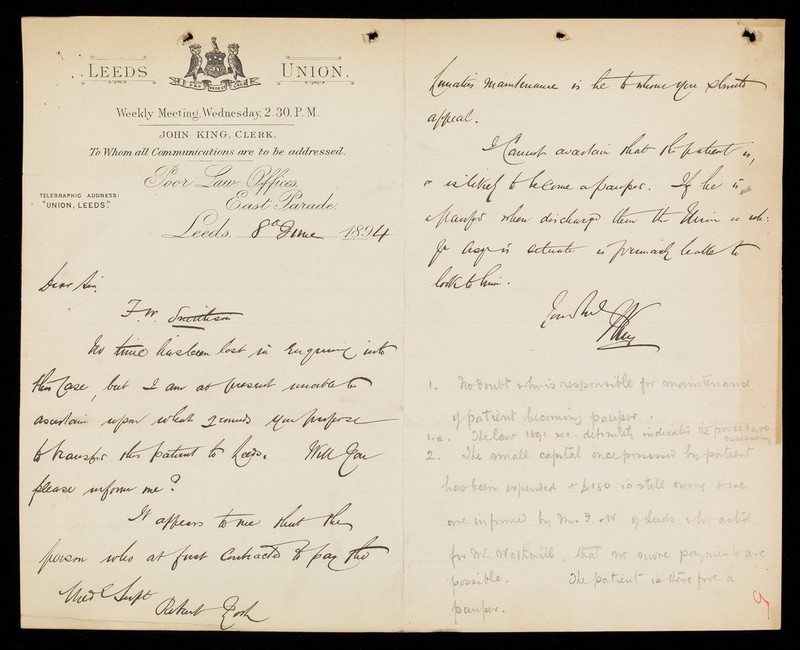 LEEDS UNION.
Weekly Meeting, Wednesday, 2.30. P.M.
JOHN KING, CLERK,
To Whom all Communications are to be addressed.
Poor Law Offices,
TELEGRAPHIC ADDRESS:
"UNION, LEEDS."
East Parade.
Leeds, 8th June 1894
Dear Sir,
F. W. Smithson
No time has been lost in Enquiring into
this Case, but I am at present unable to
ascertain upon what grounds you propose
to transfer this patient to Leeds. Will you
please inform me?
It appears to me that the
person who at first Contracted to pay the
Med Supt
Lunatics maintenance is he to whom you should
appeal.
I cannot ascertain that the patient is,
or is likely to become a pauper. If he is
a pauper when discharged then the Union in
is situate is primarily liable to
look to him.
1. No doubt who is responsible for maintenance
of patient becoming pauper.
1.a. The law 1891. sec. definitely indicates the procedure
necessary
2. The small capital once possessed by patient
has been expended & £150 is still owing & we
are informed by Mr. of Leeds who acted
for Mr. Wetherill, that no more payments are
possible. The patient is therefore a
pauper.